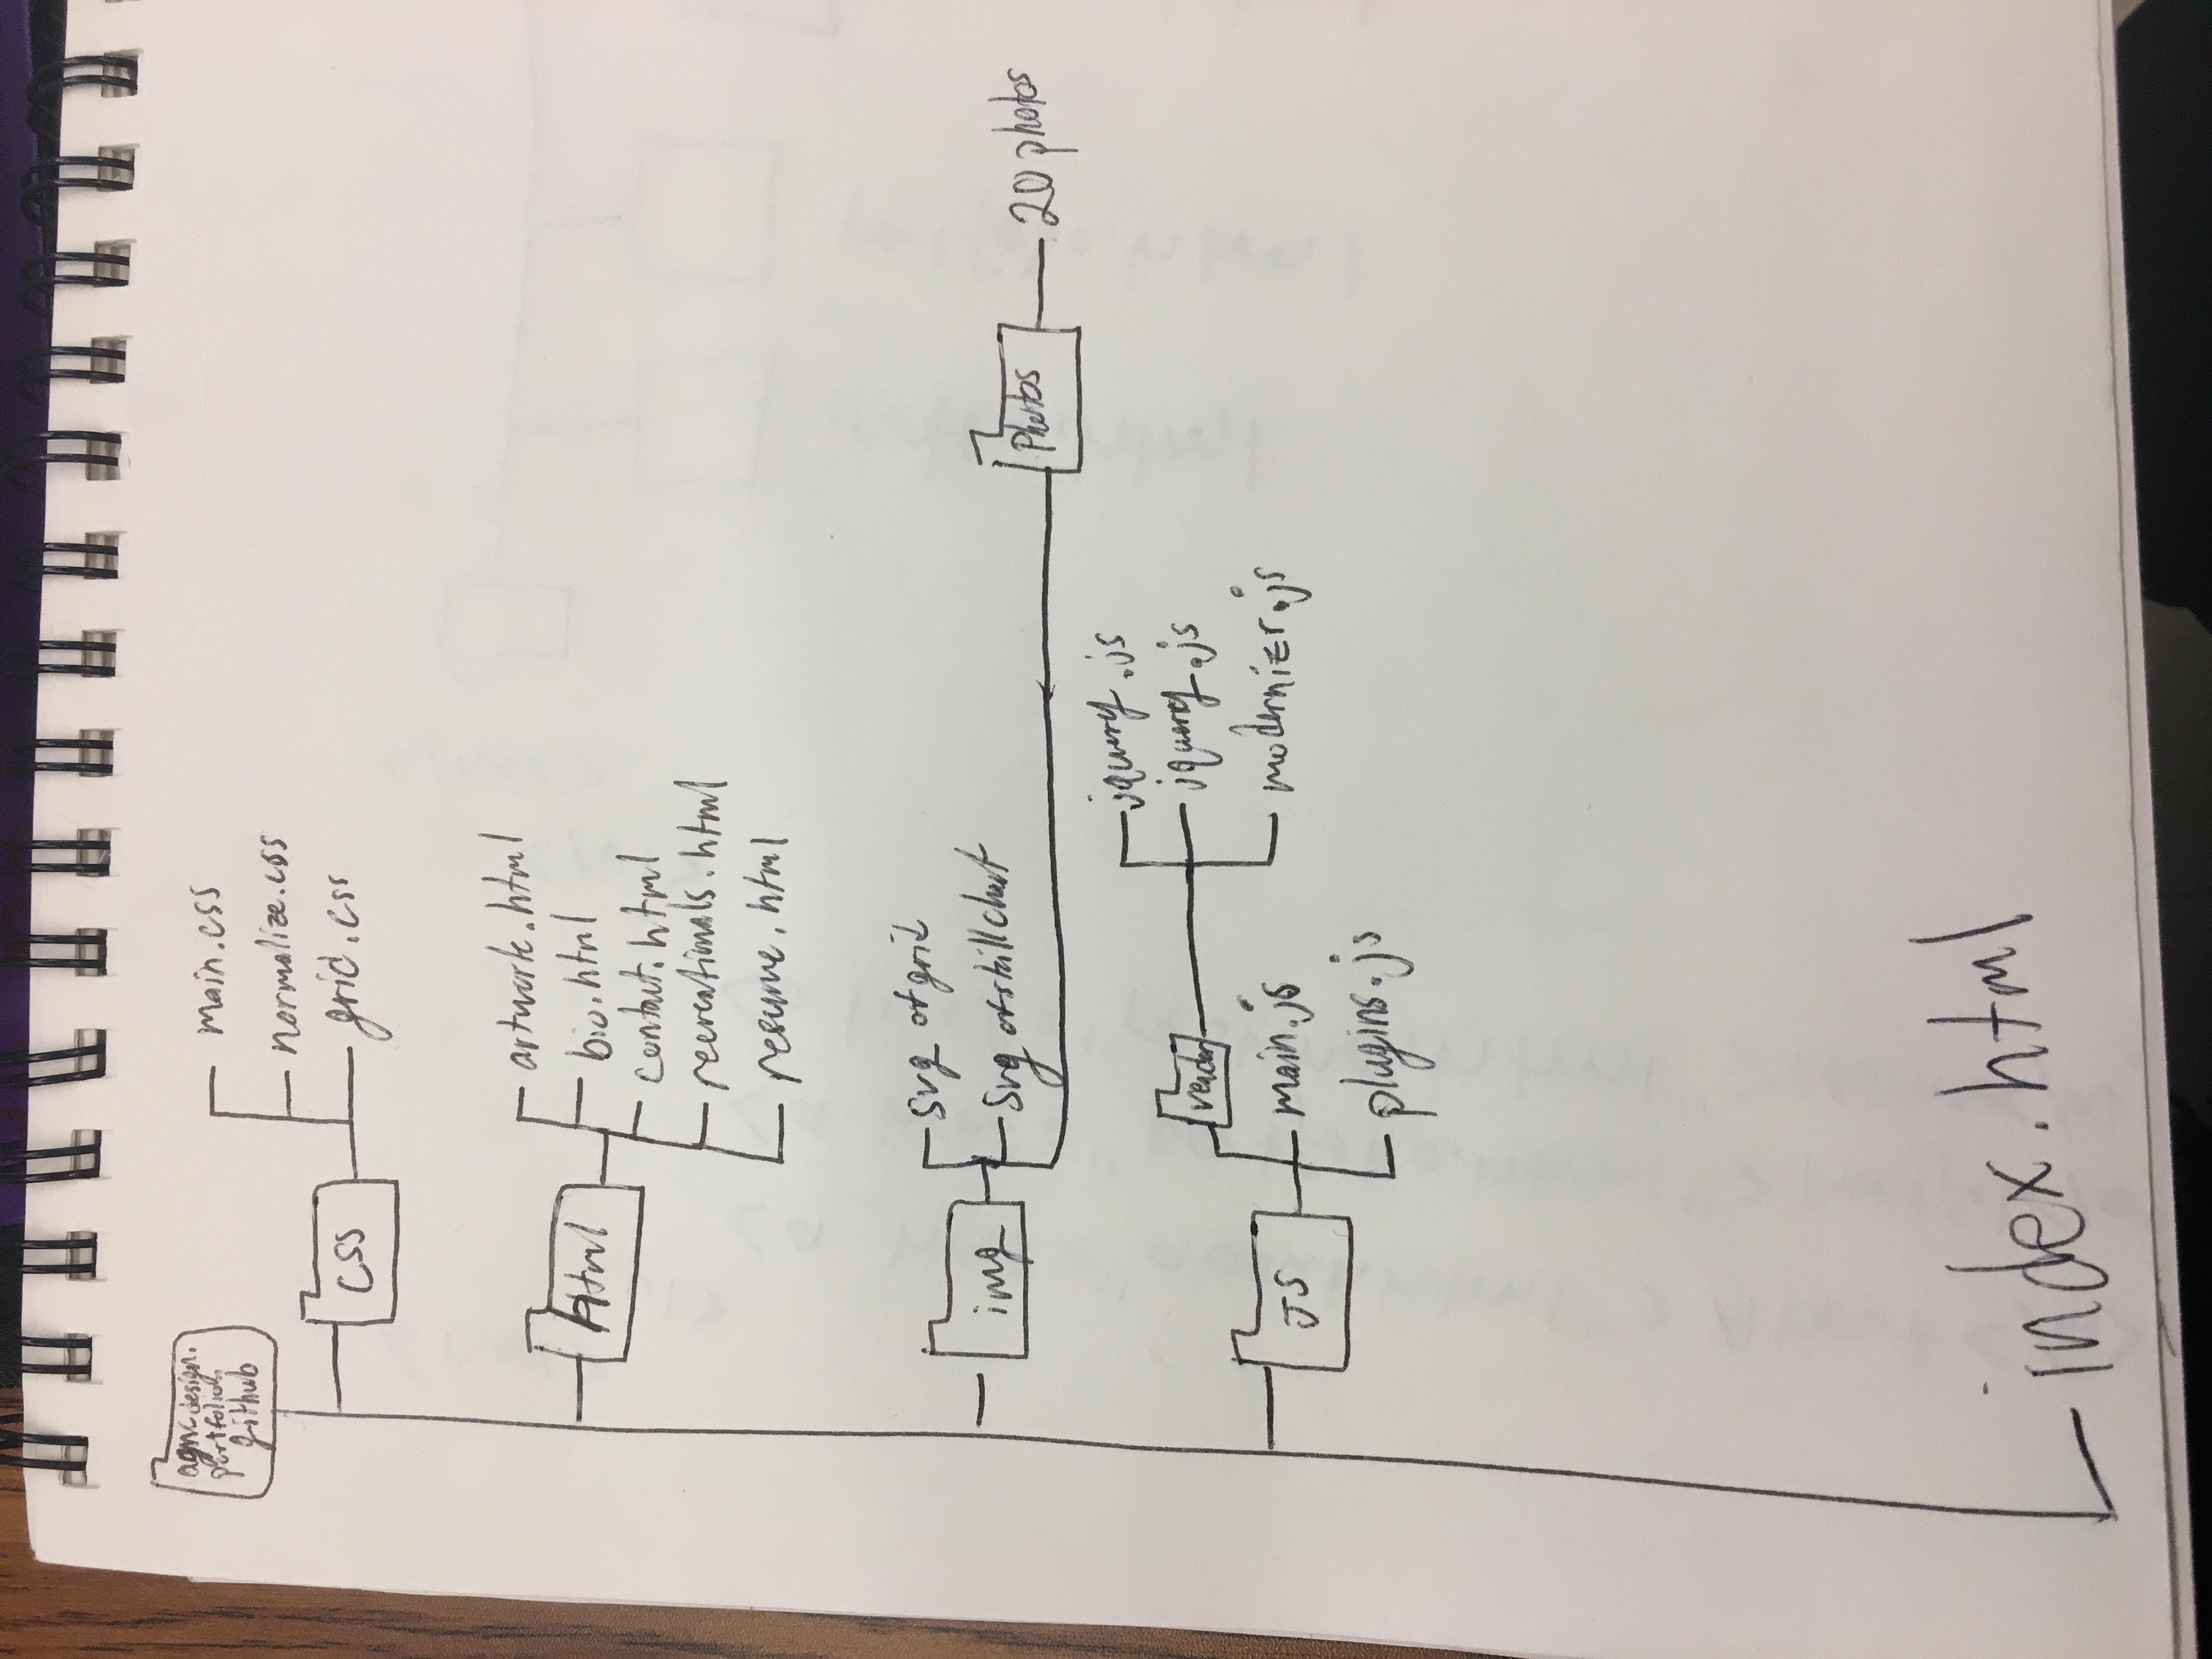 agncdesign.
portfolio.
github
main.css
normalize.css
grid.css
css
artwork.html
bio.html
html
contact.html
recreationals.html
resume.html
svg of grid
svg of skillchart
img
Photos
20 photos
jquery.js
vendor
jquery.js
main.js
modernizr.js
JS
plugins.js
index.html